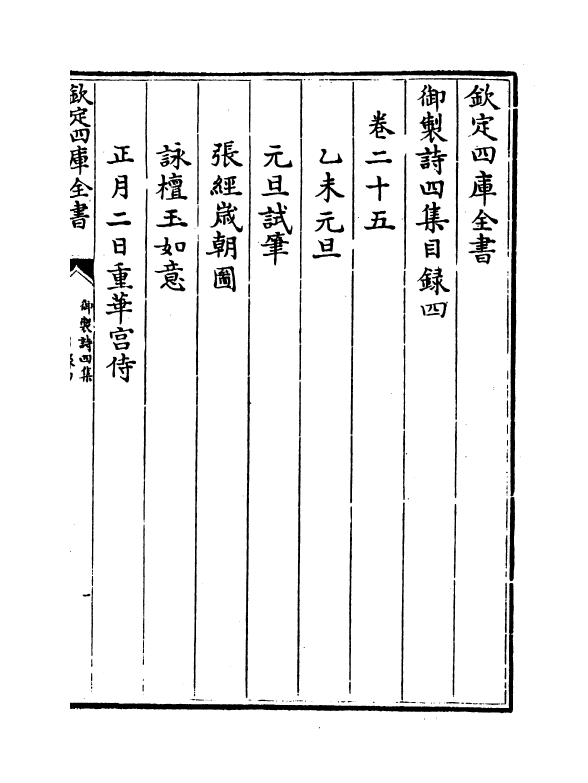 欽定四庫全書
御製詩四集目録四
卷二十五
乙未元旦
元旦試筆
張經嵗朝圖
詠檀玉如意
正月二日重華宫侍
欽定四庫全書
御製詩四集
一